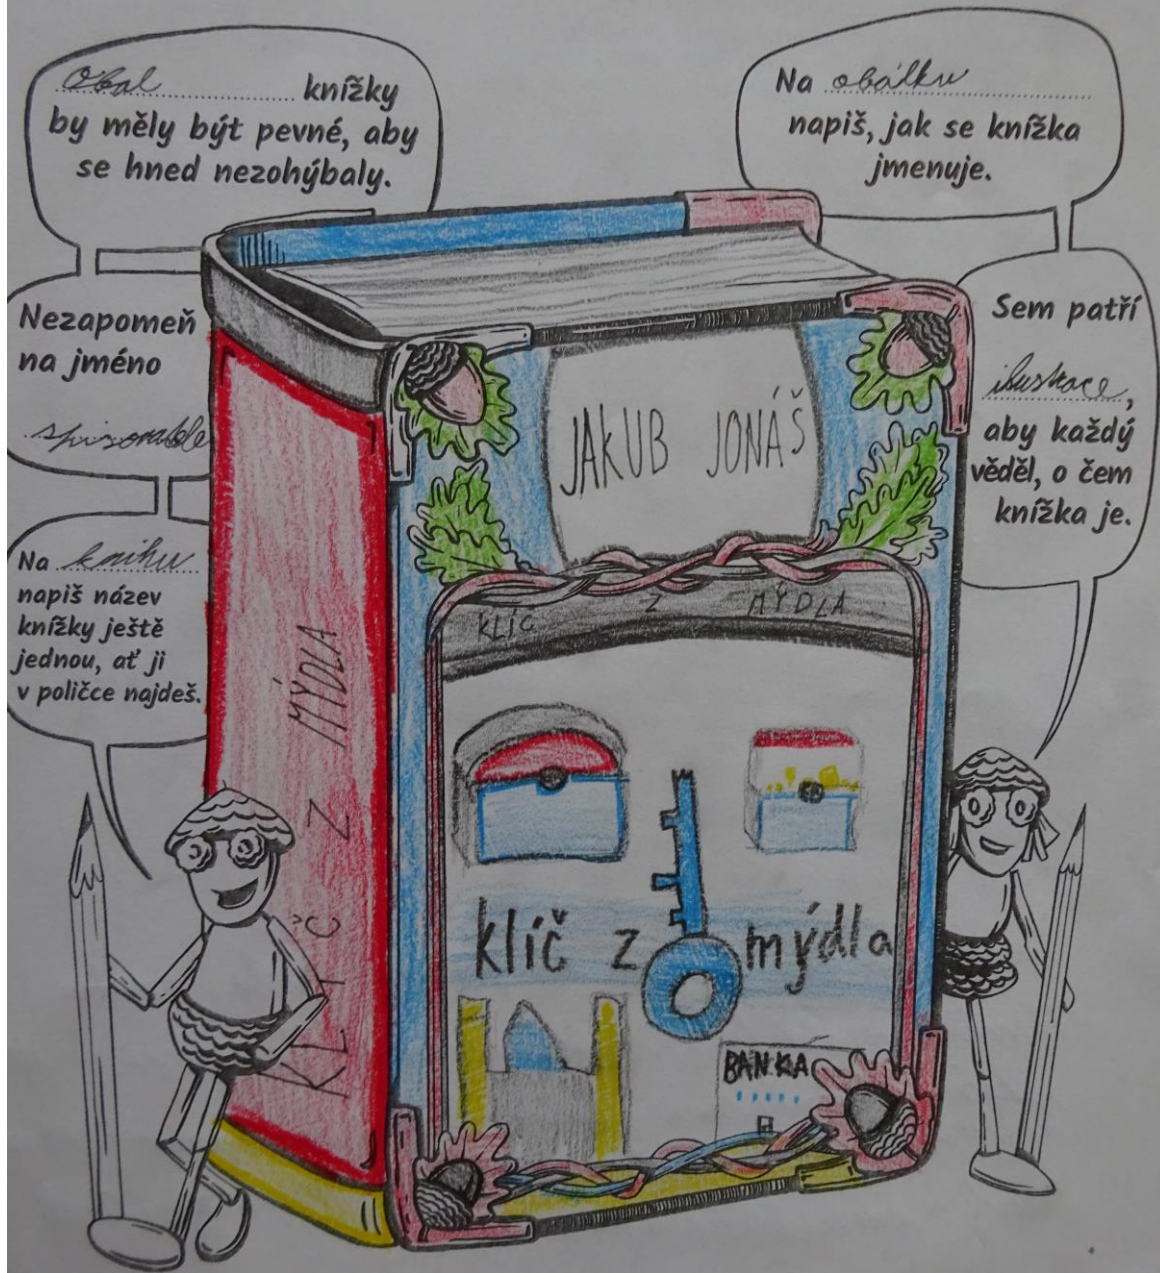 Obal knížky
by měly být pevné, aby
se hned nezohýbaly.
Na obálku
napiš, jak se knížka
jmenuje.
Nezapomeň
na jméno
spisovatele
Sem patří
ilustrace,
aby každý
věděl, o čem
knížka je.
Na knihu
napiš název
knížky ještě
jednou, ať ji
v poličce najdeš.
JAKUB JONÁŠ
KLÍČ Z MÝDLA
KLÍČ Z MÝDLA
klíč z mýdla
BANKA